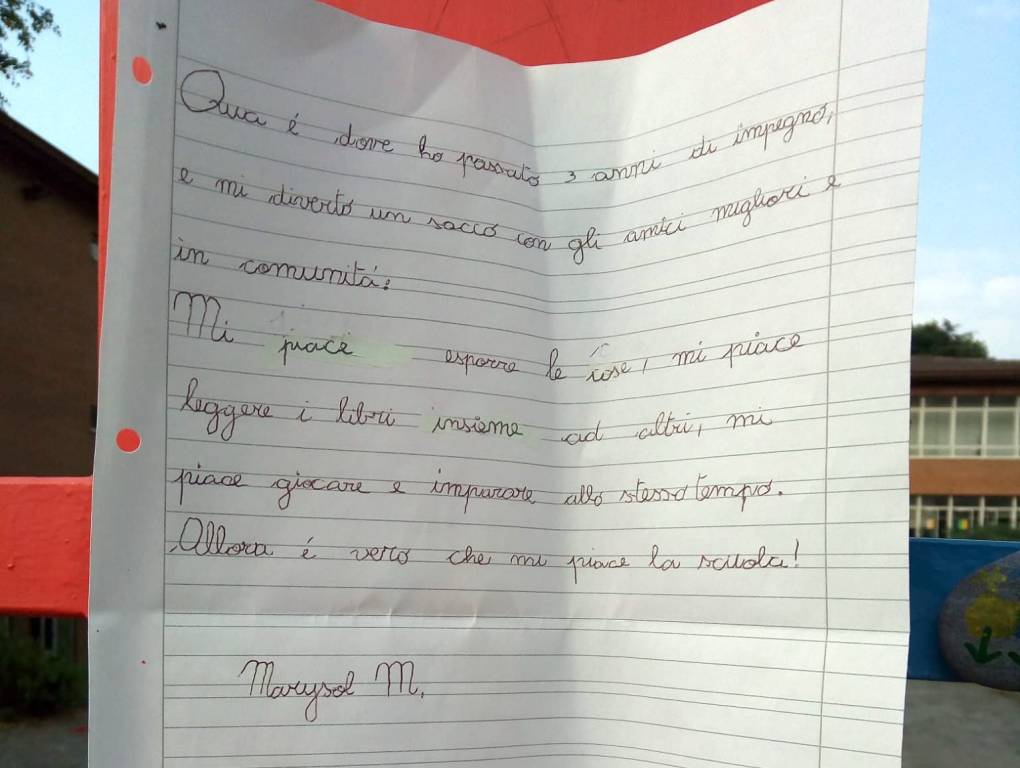 Qua é dove ho passato 3 anni di impegno,
e mi diverto un sacco con gli amici migliori e
in comunità:
Mi piace esporre le cose, mi piace
leggere i libri insieme ad altri, mi
piace giocare e imparare allo stesso tempo.
Allora é vero che mi piace la scuola!
Marysol M.